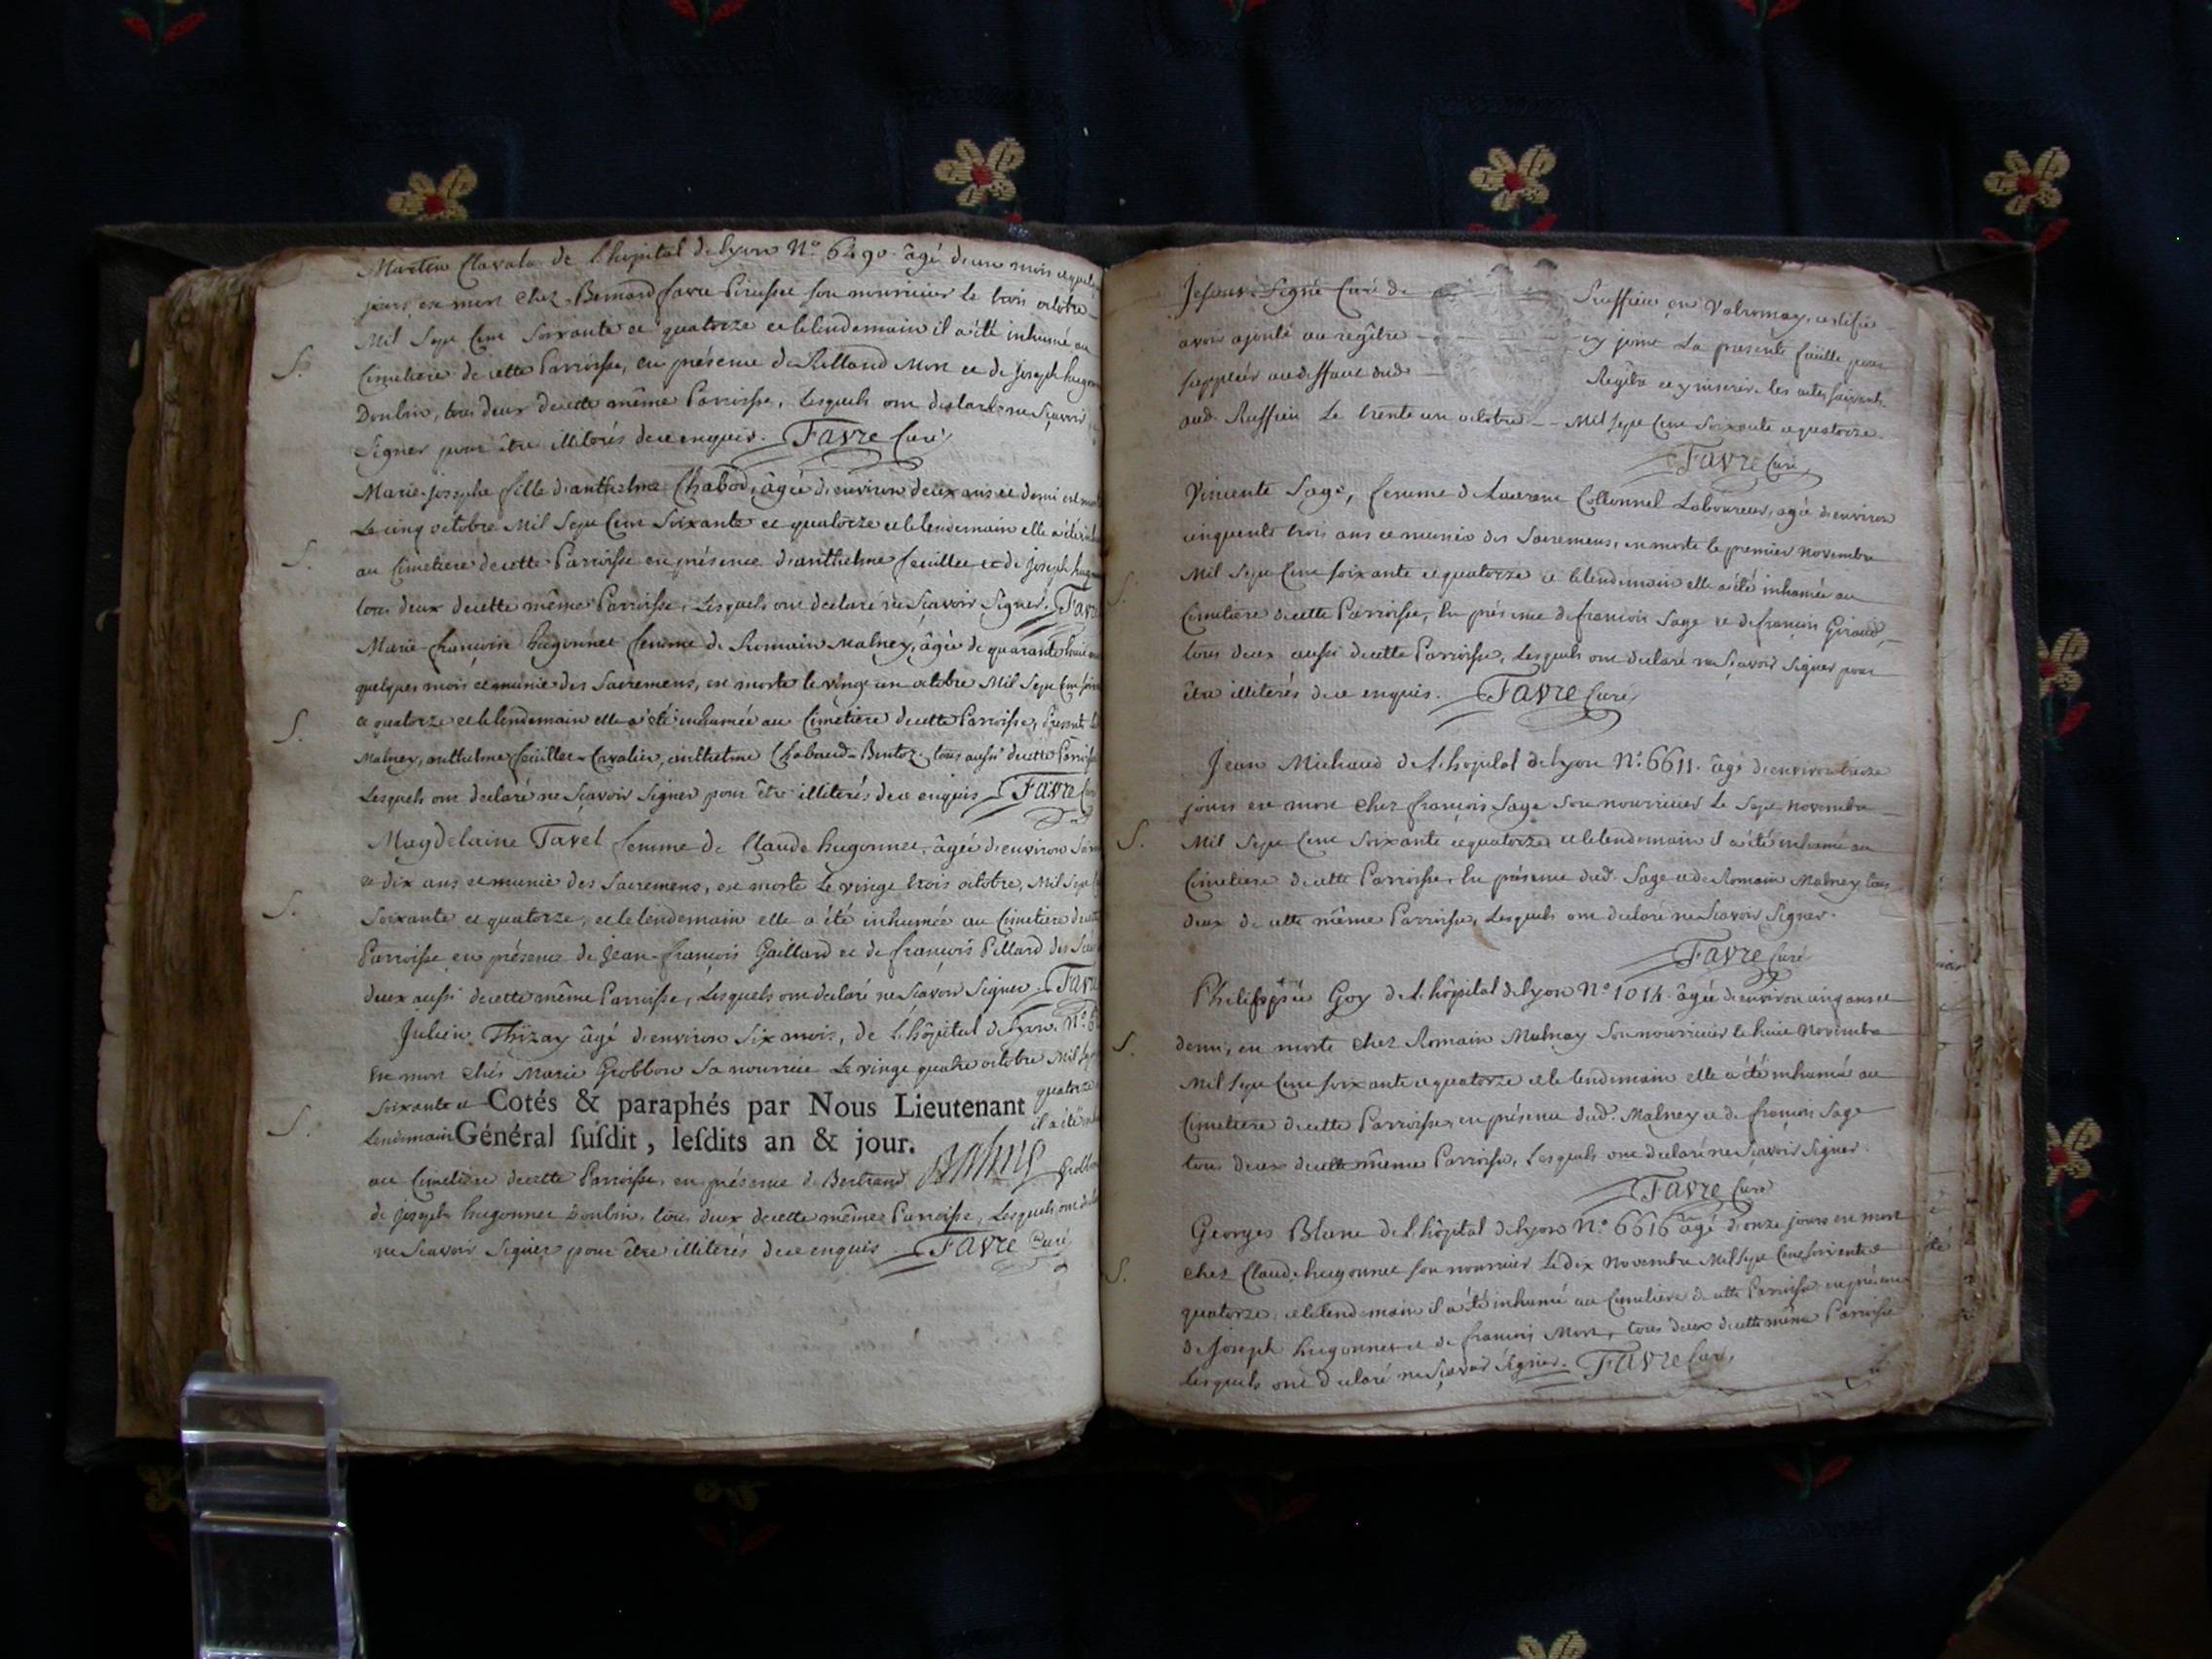 Martin Clavala de L'hopital de Lyon N.º 6490. âgé d'un mois et quelq
jours, est mort chez Bernard favre son nourricier le trois octobre
Mil Sept Cent Soixante et quatorze et le lendemain il a été inhumé au
S. Cimetiere de cette Parroisse, en présence de Rolland Mort et de Joseph hugon
Doublin, tous deux de cette même Parroisse, Lesquels ont déclaré ne Sçavoir
Signer pour être illiterés de ce enquis. Favre Curé
Marie-Josephe fille d'anthelme Chabod, âgée d'environ deux ans et demi est mort
Le cinq octobre Mil Sept Cent Soixante et quatorze et le lendemain elle a été inh
S. au Cimetiere de cette Parroisse en présence d'anthelme feuillet et de Joseph hug
tous deux de cette même Parroisse, Lesquels ont declaré ne Sçavoir Signer. Favre
Marie-françoise hugonnet femme de Romain Malney, âgée de quarante huit
quelques mois et munie des Sacremens, est morte le vingt un octobre Mil Sept Cent soix
S. et quatorze et le lendemain elle a été inhumée au Cimetiere de cette Parroisse, Présents
Malney, anthelme feuillet-Cavalier, anthelme Chabaud-Bentoz tous aussi de cette Parroiss
Lesquels ont declaré ne Sçavoir Signer pour être illiterés de ce enquis. Favre Cur
Magdelaine Tavel femme de Claude hugonnet, âgée d'environ
et dix ans et munie des Sacremens, est morte Le vingt trois octobre, Mil Sept
S. Soixante et quatorze, et le lendemain elle a été inhumée au Cimetiere de cett
Parroisse en présence de Jean-françois Gaillard et de françois Pillard
deux aussi de cette même Parroisse, Lesquels ont declaré ne Sçavoir Signer. Favre
Julien Thizay âgé d'environ Six mois, de L'hôpital de Lyon. N.º 6
est mort chés Marie Grobbon Sa nourrice Le vingt quatre octobre Mil Sept
Soixante et Cotés & paraphés par Nous Lieutenant quatorze
S. Lendemain Général ſuſdit, leſdits an & jour. il a été inh
au Cimetiere de cette Parroisse, en présence de Bertrand Grobbon
de joseph hugonnet Doublin, tous deux de cette même Parroisse, Lesquels ont decla
ne Sçavoir Signer pour être illiterés de ce enquis. Favre Curé
Je soussigné Curé de Ruffieu en Valromay, certifie
avoir ajouté au regître cy joint La presente füille pour
suppléer au deffaut dud. Regître et y inserer les actes suivants.
aud. Ruffieu Le trente un octobre Mil sept Cent Soixante et quatorze.
Favre Curé
Vincente Sage, femme de Laurent Collonnel Laboureur, agée d'environ
cinquente trois ans et munie des Sacremens, est morte le premier novembre
S. Mil Sept Cent soixante et quatorze et le lendemain elle a été inhumée au
Cimetiere de cette Parroisse, En présence de françois Sage et de françois Giraud,
tous deux aussi de cette Parroisse, Lesquels ont declaré ne Sçavoir Signer pour
être illiterés de ce enquis. Favre Curé
Jean Michaud de L'hopital de Lyon N.º 6611. âgé d'environ treize
jours est mort chez françois Sage Son nourricier Le Sept novembre
S. Mil Sept Cent Soixante et quatorze et le lendemain il a été inhumé au
Cimetiere de cette Parroisse, En présence dud. Sage et de Romain Malney tous
deux de cette même Parroisse, Lesquels ont declaré ne Sçavoir Signer.
Favre Curé
Goy de L'hôpital de Lyon N.º 1014. âgée d'environ cinq ans et
S. demi, est morte chez Romain Malney Son nourricier le huit Novembre
Mil Sept Cent soixante et quatorze et le lendemain elle a été inhumée au
Cimetiere de cette Parroisse, en présence dud. Malney et de françois Sage
tous deux de cette même Parroisse, Lesquels ont declaré ne Sçavoir Signer.
Favre Curé
Georges Blanc de L'hôpital de Lyon N.º 6616 âgé d'onze jours est mort
S. chez Claude hugonnet son nourricier Le dix Novembre Mil Sept Cent soixante et
quatorze, et le lendemain il a été inhumé au Cimetiere de cette Parroisse en présence
de Joseph hugonnet et de françois Mort, tous deux de cette même Parroisse
Lesquels ont declaré ne Sçavoir Signer. Favre Curé